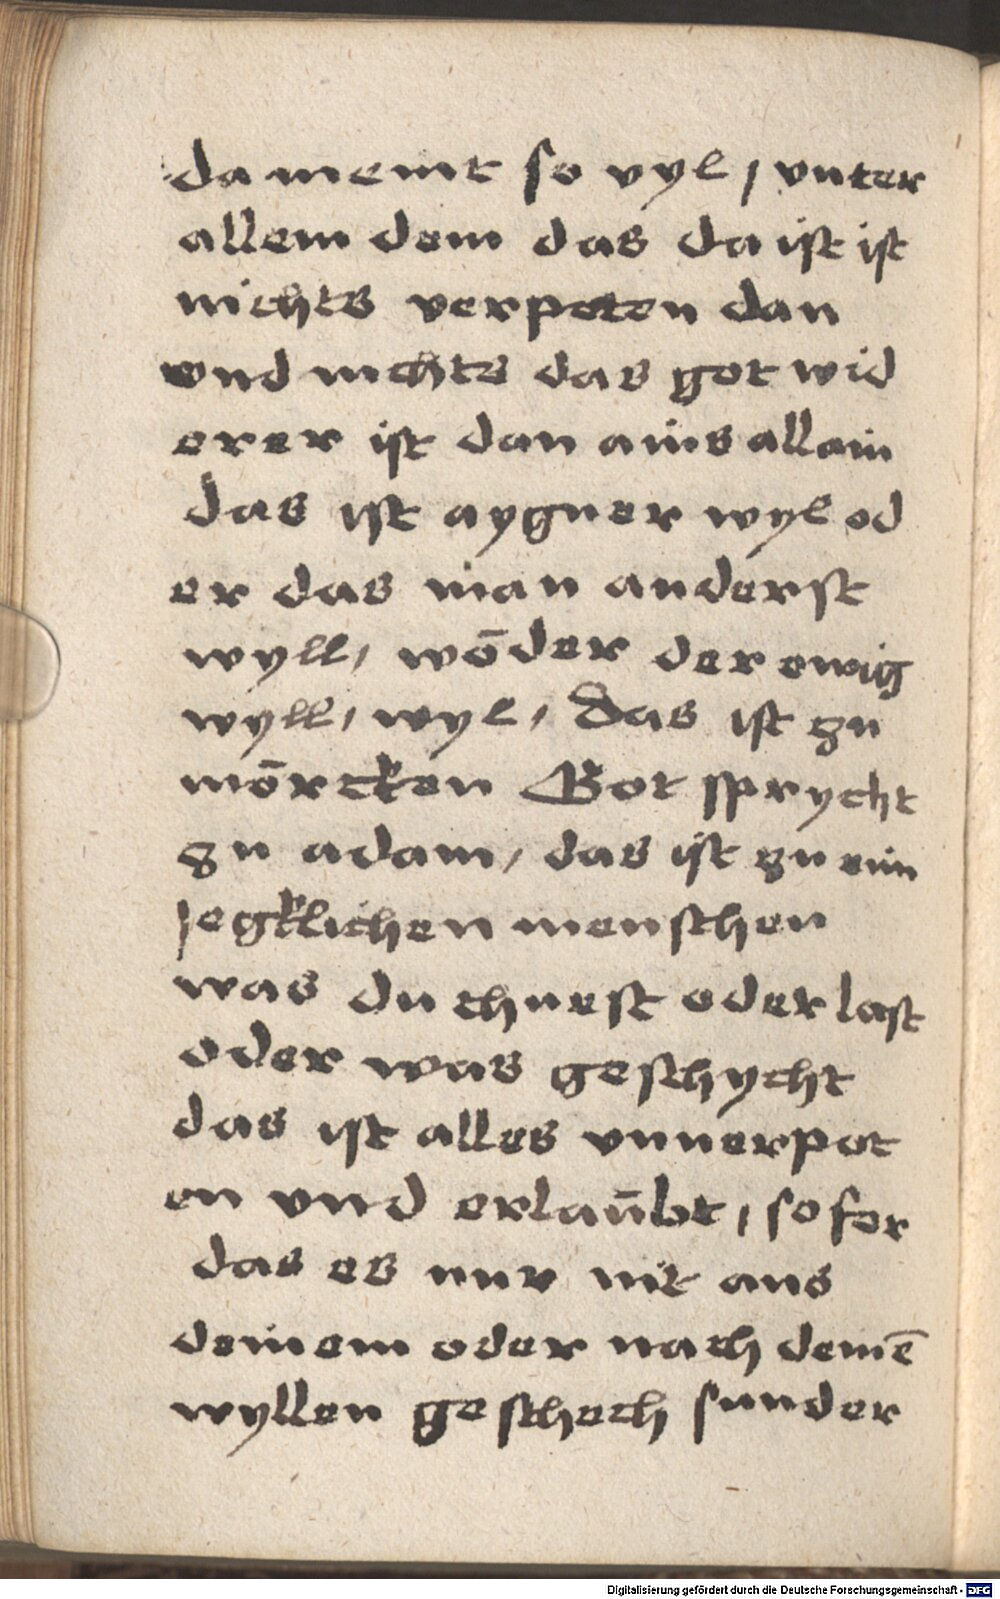 da meint so vyl / vnter
allem dem das da ist ist
nichts verpoten dan
vnd nichts das got wid
erer ist dan ains allain
das ist aygner wyl od
er das man anderst
wyll / wōder der ewig
wyll / wyl / das ist zu
mōrcken Got sprycht
zu adam / das ist zu eim
jegklichen menschen
was du thuest oder last
oder was geschycht
das ist alles vnuerpot
en vnd erlaūbt / so fer
das es nur nit aus
deinem oder nach deinē
wyllen geschech sunder
Digitalisierung gefördert durch die Deutsche Forschungsgemeinschaft - DFG